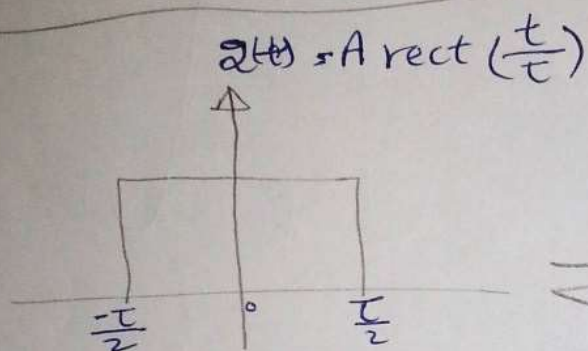 x(t) = A rect (t/τ)
-τ/2 0 τ/2